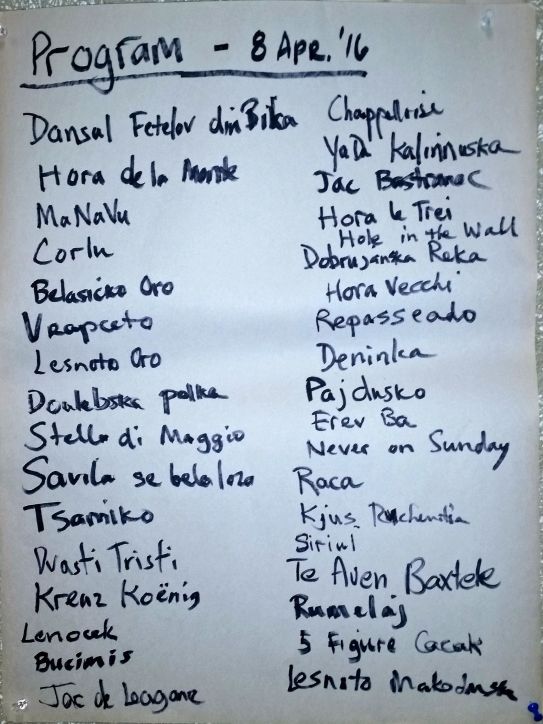 Program - 8 Apr. '16
Dansul Fetelor din Bitka
Hora de la Munte
MaNaVu
Corlu
Belasicko Oro
Vrapceto
Lesnoto Oro
Doulebska polka
Stella di Maggio
Savila se bela loza
Tsamiko
Drasti Tristi
Kreuz Koënig
Lenocek
Bucimis
Joc de Leagane
Chappelloise
YaDa Kalinnuska
Joc Bastranac
Hora le Trei
Hole in the Wall
Dobrujanska Reka
Hora Vecchi
Repasseado
Deninka
Pajdusko
Erev Ba
Never on Sunday
Raca
Kjus Ruchenitia
Siriul
Te Aven Baxtele
Rumelaj
5 Figure Cacak
Lesnoto Makodonska